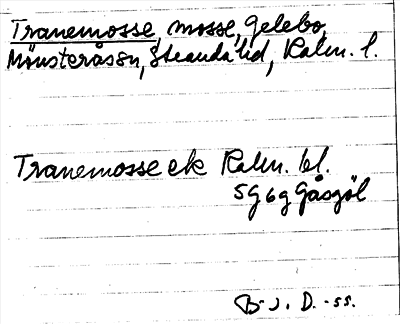 Tranemosse, mosse, Gelebo,
Mönsterås sn, Stranda hd, Kalm. l.
Tranemosse ek Kalm. bl.
5G 6g Gåsgöl
B. J. D. -55.